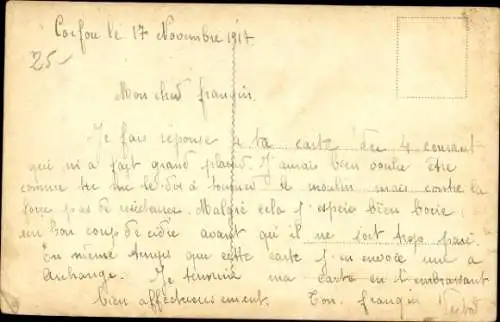 Corfou le 17 Novembre 1917.
25-
Mon cher françin.
Je fais réponse a ta carte du 4 courant
qui m'a fait grand plaisir. J'aurais bien voulu être
comme tu me le dis à tourner le moulin mais contre la
force pas de résistance. Malgré cela j'espère bien boire
un bon coup de cidre avant qu'il ne soit trop paré.
En même temps que cette carte j'en envoie une a
Je termine ma carte en t'embrassant
bien affectueusement. Ton françin